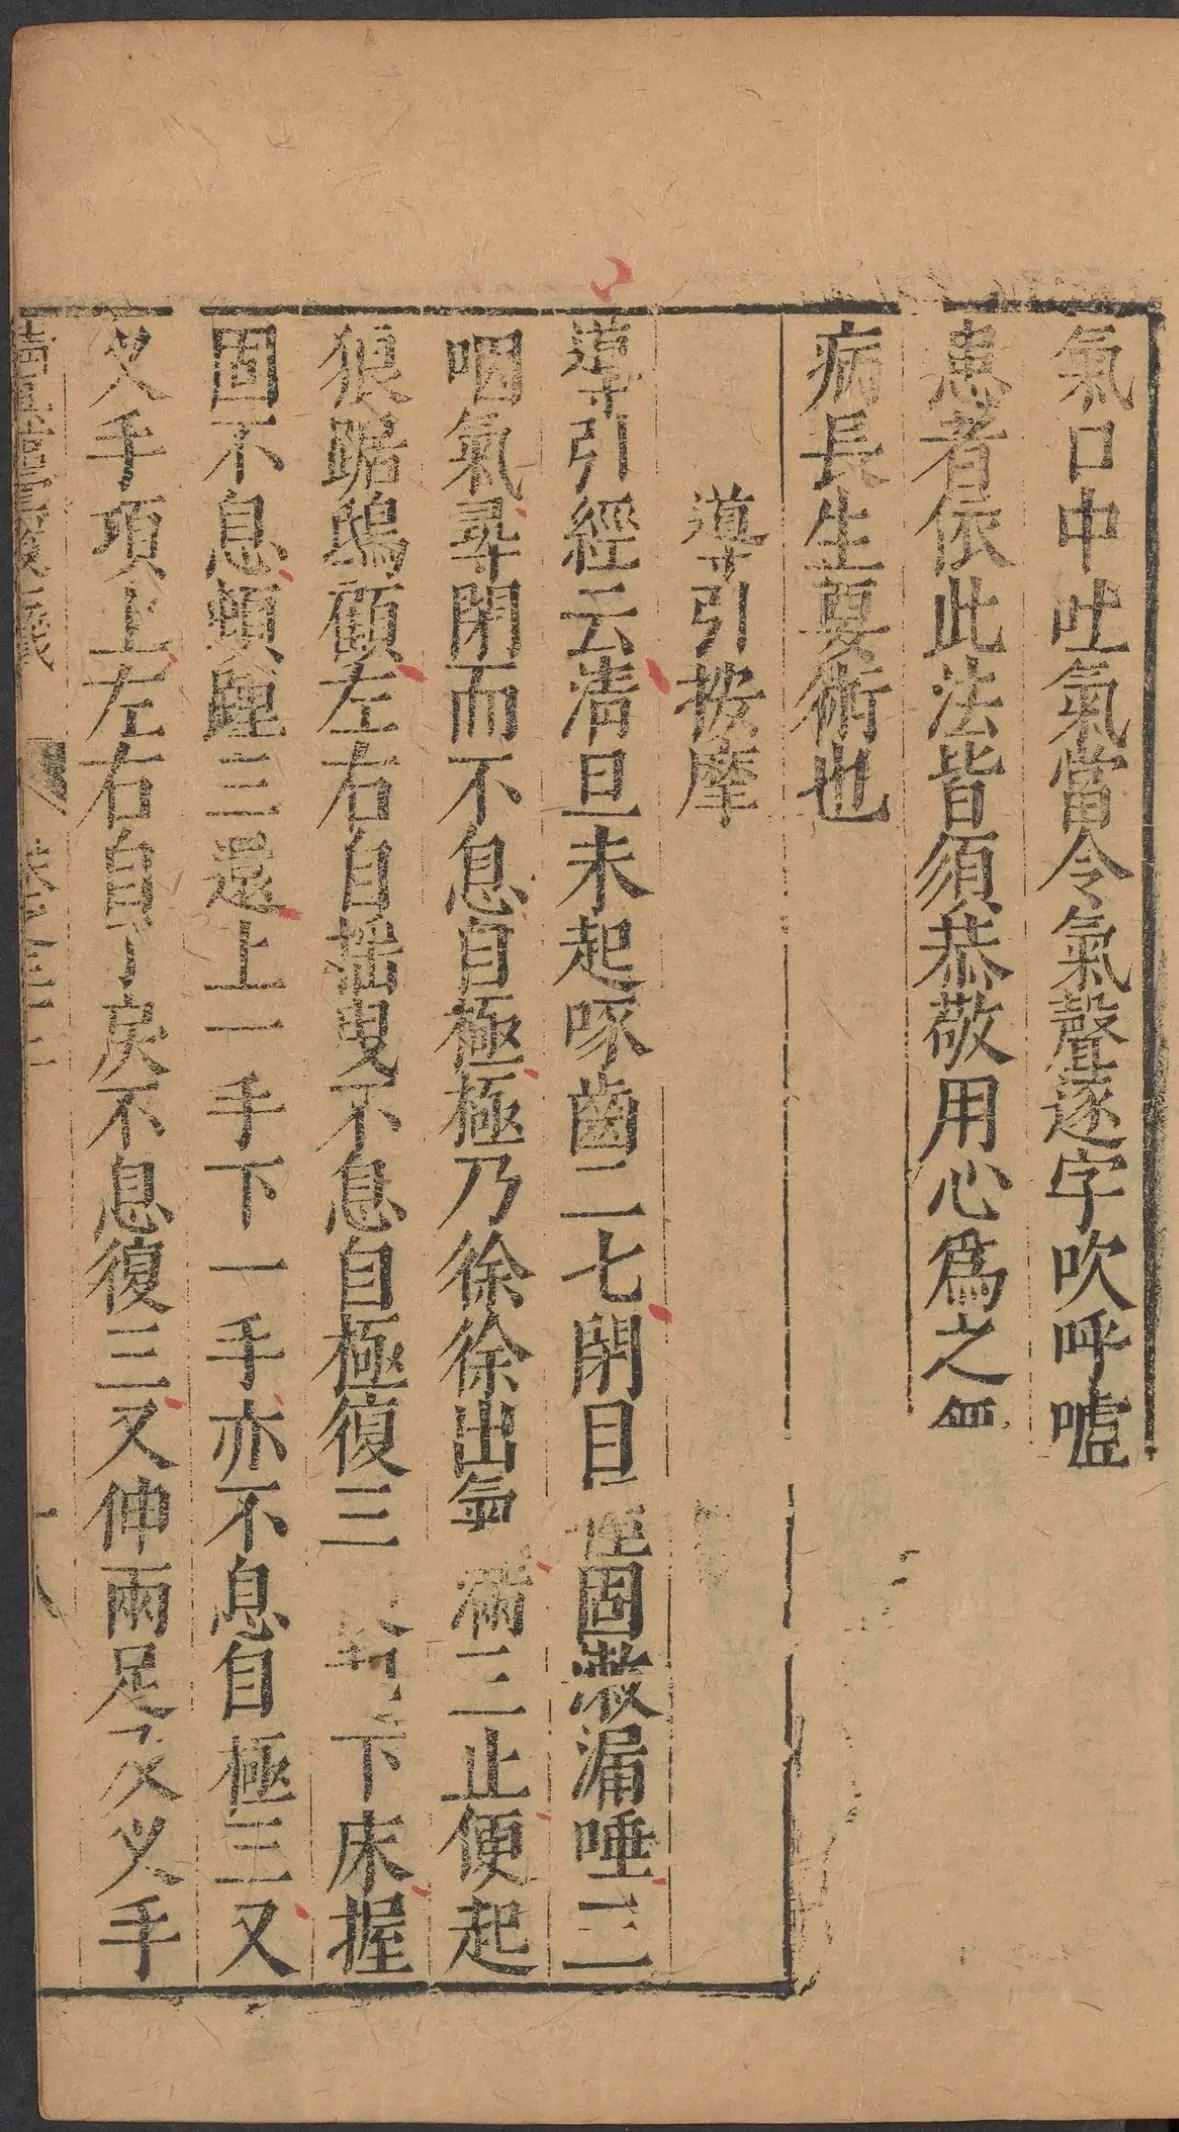 氣口中吐氣當令氣聲逐字吹呼噓
患者依此法皆須恭敬用心爲之無
病長生要術也
導引按摩
導引經云清旦未起啄齒二七閉目握固漱漏唾三
咽氣尋閉而不息自極極乃徐徐出氣滿三止便起
狼踞鴟顧左右自摇曳不息自極復三下床握
固不息頓踵三還上一手下一手亦不息自極三又
叉手項上左右自了戾不息復三又伸兩足及叉手